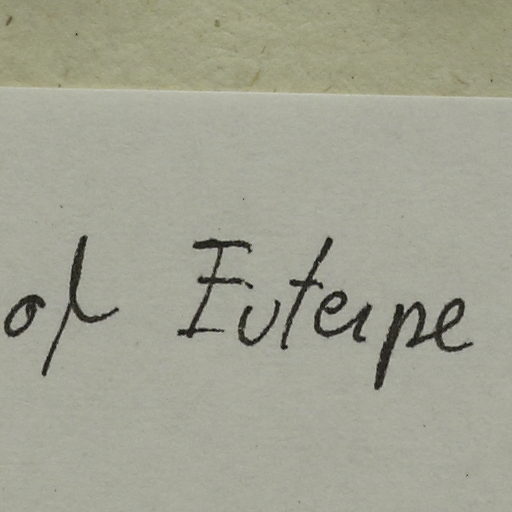 of Euterpe